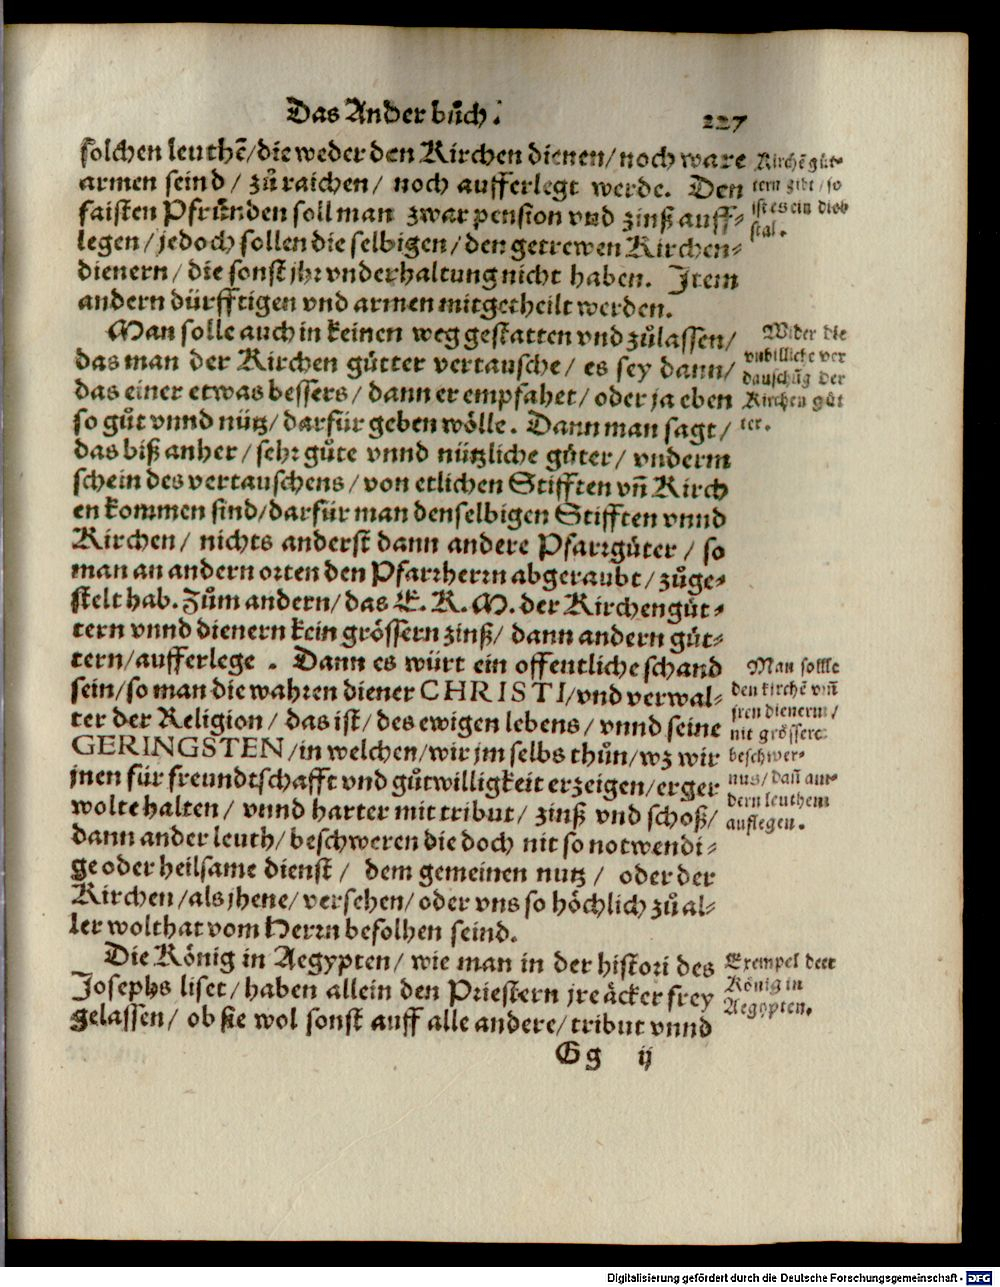 Das Ander bůch.
227
solchen leuthẽ/die weder den Kirchen dienen/noch ware
armen seind/ zů raichen/ noch aufferlegt werde. Den
faisten Pfrůnden soll man zwar pension vnd zinß auff-
legen/jedoch sollen die selbigen/den getrewen Kirchen-
dienern/die sonst jhr vnderhaltung nicht haben. Item
andern dürfftigen vnd armen mitgetheilt werden.
Kirchẽ güt-
tern gibt/so
ist es ein dieb
stal.
Man solle auch in keinen weg gestatten vnd zůlassen/
das man der Kirchen gůtter vertausche/ es sey dann/
das einer etwas bessers/ dann er empfahet/oder ja eben
so gůt vnnd nütz/darfür geben wölle. Dann man sagt/
das biß anher/sehr gůte vnnd nützliche gůter/ vnderm
schein des vertauschens/von etlichen Stifften vñ Kirch
en kommen sind/darfür man denselbigen Stifften vnnd
Kirchen/ nichts anderst dann andere Pfarrgůter/ so
man an andern orten den Pfarrherrn abgeraubt/zůge-
stelt hab. Zům andern/das E. K. M. der Kirchengůt-
tern vnnd dienern kein grössern zinß/ dann andern gůt-
tern/aufferlege. Dann es würt ein offentliche schand
sein/so man die wahren diener CHRISTI/vnd verwal-
ter der Religion/ das ist/des ewigen lebens/ vnnd seine
GERINGSTEN/in welchen/wir jm selbs thůn/wz wir
jnen für freundtschafft vnd gůtwilligkeit erzeigen/erger
wolte halten/ vnnd harter mit tribut/ zinß vnd schoß/
dann ander leuth/beschweren die doch nit so notwendi-
ge oder heilsame dienst/ dem gemeinen nutz/ oder der
Kirchen/als jhene/versehen/oder vns so höchlich zů al-
ler wolthat vom Herrn befolhen seind.
Wider die
vnbilliche ver
dauschũg der
Kirchen gůt
ter.
Man sollle
den kirchẽ vnñ
jren dienern/
nit grössere
beschwer-
nus/dañ an-
dern leuthem
auflegen.
Die König in Aegypten/ wie man in der histori des
Josephs liset/haben allein den Priestern jre äcker frey
gelassen/ ob sie wol sonst auff alle andere/tribut vnnd
Exempel deer
König in
Aegypten.
Gg ij
Digitalisierung gefördert durch die Deutsche Forschungsgemeinschaft - DFG